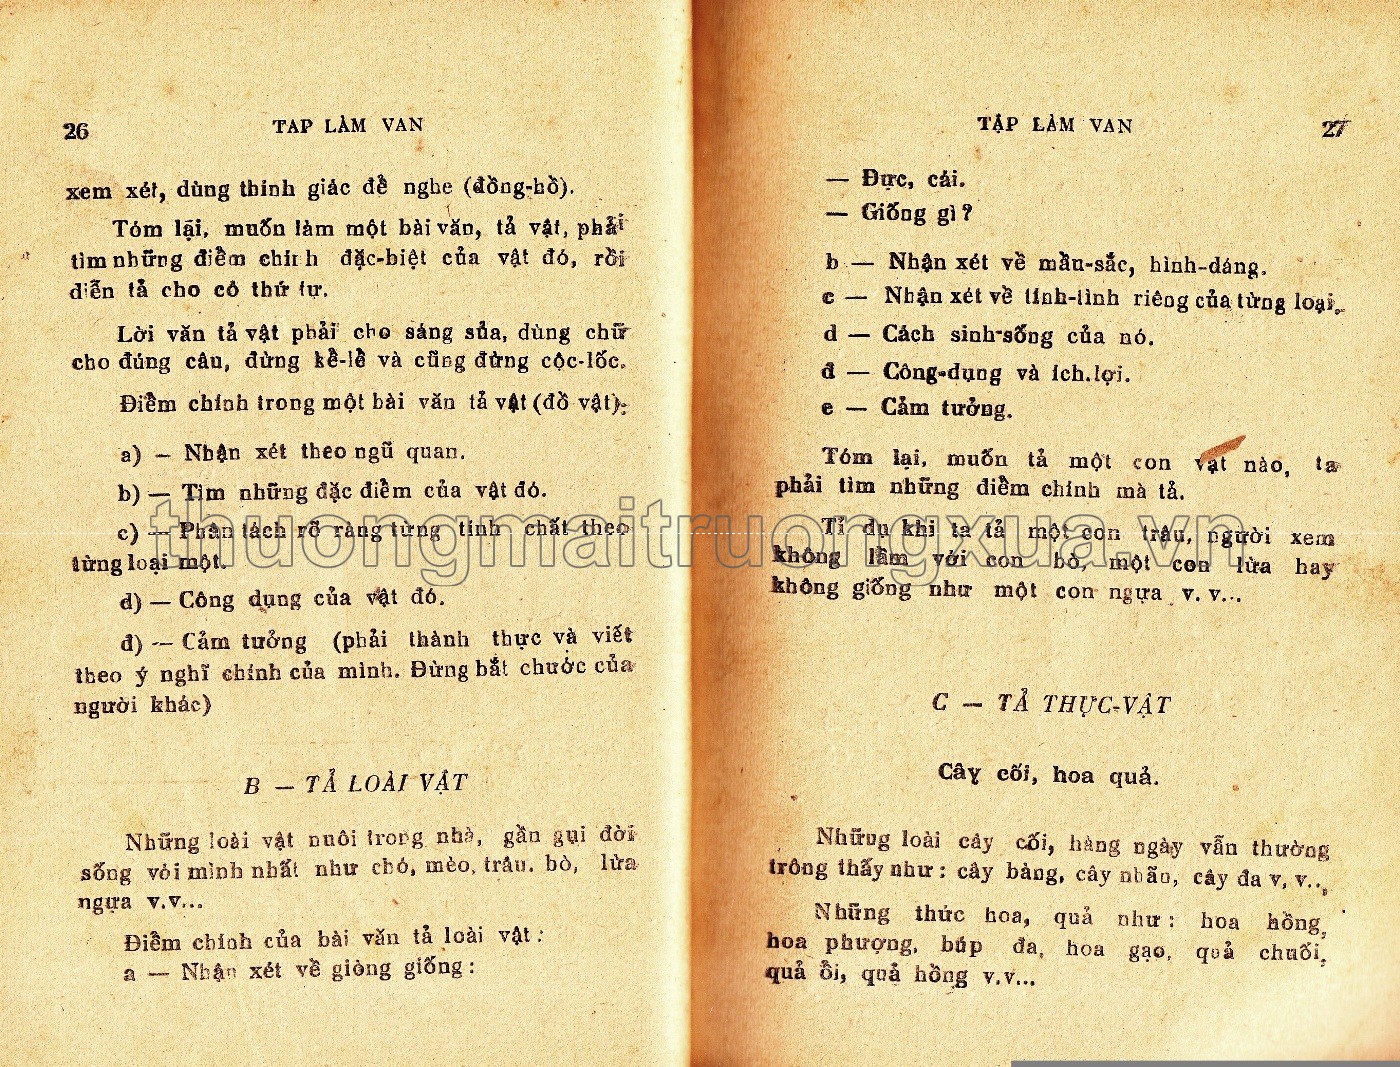 26
TAP LÀM VAN
xem xét, dùng thính giác để nghe (đồng-hồ).
Tóm lại, muốn làm một bài văn, tả vật, phải
tìm những điểm chính đặc-biệt của vật đó, rồi
diễn tả cho có thứ tự.
Lời văn tả vật phải cho sáng sủa, dùng chữ
cho đúng câu, đừng kề-lề và cũng đừng cộc-lốc.
Điểm chính trong một bài văn tả vật (đồ vật):
a) — Nhận xét theo ngũ quan.
b) — Tìm những đặc điểm của vật đó.
c) — Phân tách rõ ràng từng tính chất theo
từng loại một.
d) — Công dụng của vật đó.
đ) — Cảm tưởng (phải thành thực và viết
theo ý nghĩ chính của mình. Đừng bắt chước của
người khác)
B — TẢ LOÀI VẬT
Những loài vật nuôi trong nhà, gần gụi đời
sống với mình nhất như chó, mèo, trâu. bò, lừa
ngựa v.v...
Điểm chính của bài văn tả loài vật :
a — Nhận xét về giòng giống :
TẬP LÀM VAN
27
— Đực, cái.
— Giống gì ?
b — Nhận xét về mầu-sắc, hình-dáng.
c — Nhận xét về tính-tình riêng của từng loại.
d — Cách sinh-sống của nó.
đ — Công-dụng và ích.lợi.
e — Cảm tưởng.
Tóm lại, muốn tả một con vật nào, ta
phải tìm những điểm chính mà tả.
Tỉ dụ khi ta tả một con trâu, người xem
không lầm với con bò, một con lừa hay
không giống như một con ngựa v. v...
C — TẢ THỰC-VẬT
Cây cối, hoa quả.
Những loài cây cối, hàng ngày vẫn thường
trông thấy như : cây bàng, cây nhãn, cây đa v. v...
Những thức hoa, quả như : hoa hồng,
hoa phượng, búp đa, hoa gạo, quả chuối,
quả ổi, quả hồng v.v...
thuongmaitruongxua.vn